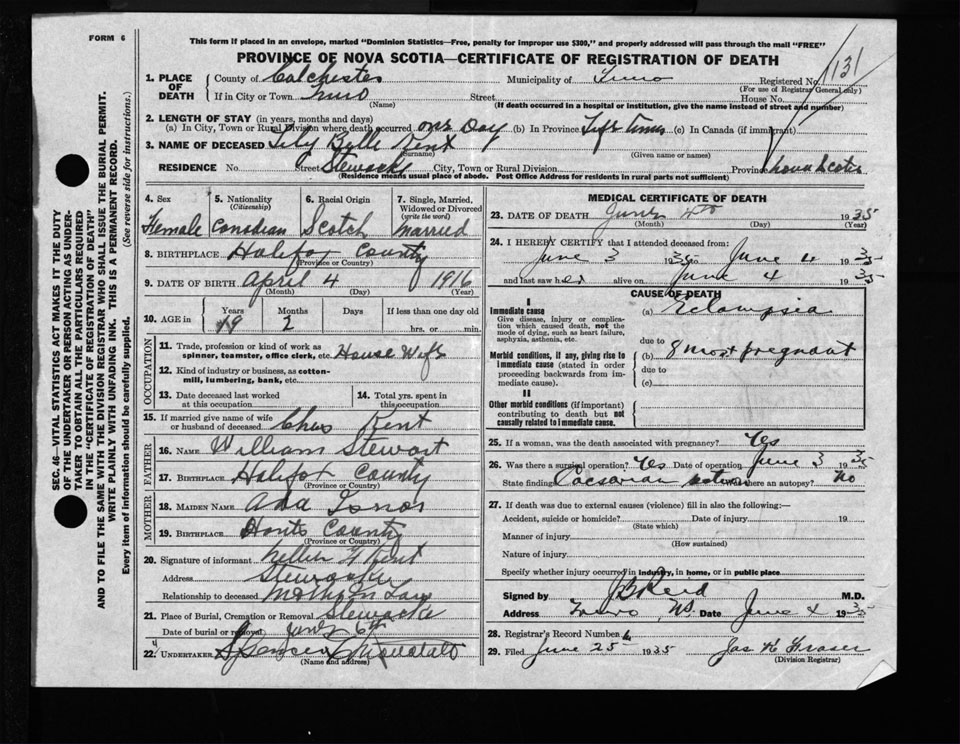 FORM 6
This form if placed in an envelope, marked "Dominion Statistics—Free, penalty for improper use $300," and properly addressed will pass through the mail "FREE"
PROVINCE OF NOVA SCOTIA—CERTIFICATE OF REGISTRATION OF DEATH
131
1. PLACE OF DEATH County of Colchester Municipality of Truro Registered No.
(For use of Registrar General only)
If in City or Town Truro Street House No.
(Name) (If death occurred in a hospital or institution, give the name instead of street and number)
2. LENGTH OF STAY (in years, months and days)
(a) In City, Town or Rural Division where death occurred one Day (b) In Province Life Time (c) In Canada (if immigrant)
3. NAME OF DECEASED Lily Belle Kent
(Surname) (Given name or names)
RESIDENCE No. Street Stewacke City, Town or Rural Division Province Nova Scotia
(Residence means usual place of abode. Post Office Address for residents in rural parts not sufficient)
4. Sex 5. Nationality (Citizenship) 6. Racial Origin 7. Single, Married, Widowed or Divorced (write the word)
Female Canadian Scotch Married
8. BIRTHPLACE Halifax County
(Province or Country)
9. DATE OF BIRTH April 4 1916
(Month) (Day) (Year)
10. AGE in Years Months Days If less than one day old
19 2 hrs. or min.
OCCUPATION
11. Trade, profession or kind of work as spinner, teamster, office clerk, etc. House Wife
12. Kind of industry or business, as cotton-mill, lumbering, bank, etc.
13. Date deceased last worked at this occupation 14. Total yrs. spent in this occupation
15. If married give name of wife or husband of deceased Chas Kent
FATHER
16. NAME William Stewart
17. BIRTHPLACE Halifax County
(Province or Country)
MOTHER
18. MAIDEN NAME Ada
19. BIRTHPLACE Hants County
(Province or Country)
20. Signature of informant Kent
Address Stewacke
Relationship to deceased Mother in Law
21. Place of Burial, Cremation or Removal Stewacke
Date of burial or removal June 6th
22. UNDERTAKER Spencer
(Name and address)
MEDICAL CERTIFICATE OF DEATH
23. DATE OF DEATH June 4th 1935
(Month) (Day) (Year)
24. I HEREBY CERTIFY that I attended deceased from:
June 3 1935 to June 4 1935
and last saw her alive on June 4 1935
CAUSE OF DEATH
I
Immediate cause
Give disease, injury or complication which caused death, not the mode of dying, such as heart failure, asphyxia, asthenia, etc.
(a) Eclampsia
due to
Morbid conditions, if any, giving rise to immediate cause (stated in order proceeding backwards from immediate cause).
(b) 8 mos pregnant
due to
(c)
II
Other morbid conditions (if important) contributing to death but not causally related to immediate cause.
25. If a woman, was the death associated with pregnancy? Yes
26. Was there a surgical operation? Yes Date of operation June 3 1935
State finding Caesarian Was there an autopsy? No
27. If death was due to external causes (violence) fill in also the following:—
Accident, suicide or homicide? Date of injury 19
(State which)
Manner of injury
(How sustained)
Nature of injury
Specify whether injury occurred in industry, in home, or in public place
Signed by J B Reid M.D.
Address Truro NS. Date June 4 1935
28. Registrar's Record Number
29. Filed June 25 1935 Jas H Fraser
(Division Registrar)
SEC. 46—VITAL STATISTICS ACT MAKES IT THE DUTY
OF THE UNDERTAKER OR PERSON ACTING AS UNDER-
TAKER TO OBTAIN ALL THE PARTICULARS REQUIRED
IN THE "CERTIFICATE OF REGISTRATION OF DEATH"
AND TO FILE THE SAME WITH THE DIVISION REGISTRAR WHO SHALL ISSUE THE BURIAL PERMIT.
WRITE PLAINLY WITH UNFADING INK. THIS IS A PERMANENT RECORD.
Every item of information should be carefully supplied. (See reverse side for instructions.)